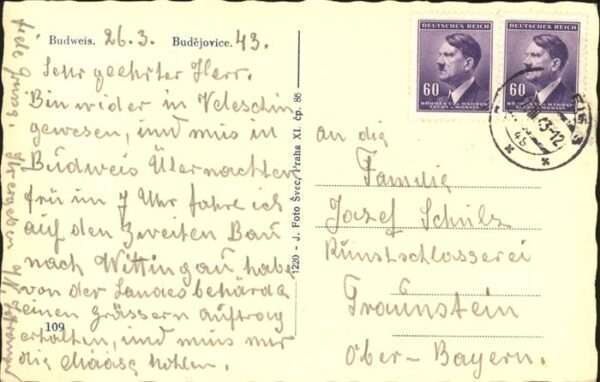 Budweis. 26.3. Budějovice. 43.
Sehr geehrter Herr.
Bin wider in Veleschin
gewesen, und mus in
Budweis Übernachten
frü im 7 Uhr fahre ich
auf den Zweiten Bau
nach Wittingau habe
von der Landesbehärda
einen grässern auftrog
erhalten, und mus mir
die Maase hohlen.
109
1220 - J. Foto Švec, Praha XI. čp. 86
DEUTSCHES REICH
60
BÖHMEN UND MÄHREN
DEUTSCHES REICH
60
BÖHMEN UND MÄHREN
an die
Familie
Josef Schulz
Kunstschlosserei
Traunstein
Ober-Bayern.